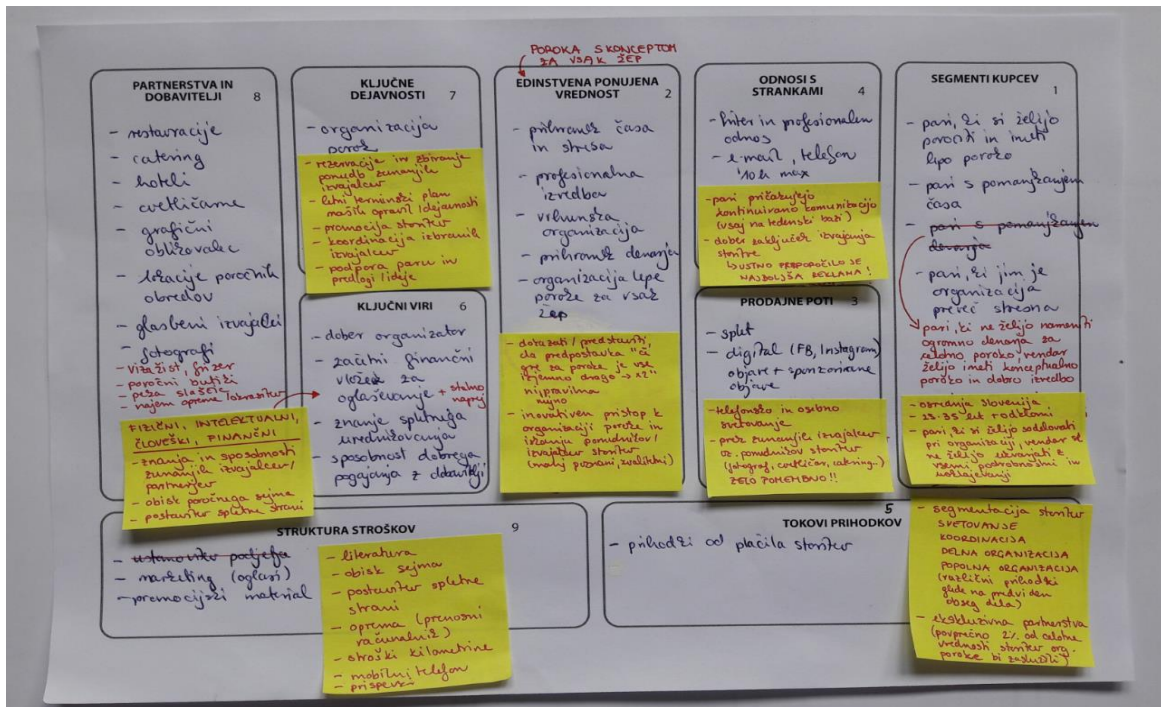 POROKA S KONCEPTOM
ZA VSAK ŽEP
PARTNERSTVA IN
DOBAVITELJI 8
- restavracije
- catering
- hoteli
- cvetličarne
- grafični
oblikovalec
- lokacije poročnih
obredov
- glasbeni izvajalci
- fotografi
- vizažist, frizer
- poročni butiki
- peka slaščic
- najem opreme/okrasitev
FIZIČNI, INTELEKTUALNI,
ČLOVEŠKI, FINANČNI
- znanja in sposobnosti
zunanjih izvajalcev/
partnerjev
- obisk poročnega sejma
- postavitev spletne strani
KLJUČNE
DEJAVNOSTI 7
- organizacija
porok
- rezervacije in zbiranje
ponudb zunanjih
izvajalcev
- letni terminski plan
naših opravil/dejavnosti
- promocija storitev
- koordinacija izbranih
izvajalcev
- podpora paru in
predlogi/ideje
KLJUČNI VIRI 6
- dober organizator
- začetni finančni
vložek za
oglaševanje + stalno
naprej
- znanje spletnega
uredništvovanja
- sposobnost dobrega
pogajanja z dobavitelji
EDINSTVENA PONUJENA
VREDNOST 2
- prihranek časa
in stresa
- profesionalna
izvedba
- vrhunska
organizacija
- prihranek denarja
- organizacija lepe
poroke za vsak
žep
- dokazati/predstaviti,
da predpostavka "če
gre za poroke je vse
izjemno drago → x2"
ni pravilna
nujno
- inovativen pristop k
organizaciji poroke in
iskanju ponudnikov/
izvajalcev storitev
(manj poznani, kvalitetni)
ODNOSI S
STRANKAMI 4
- hiter in profesionalen
odnos
- e-mail, telefon
10h max
- pari pričakujejo
kontinuirano komunikacijo
(vsaj na tedenski bazi)
- dober zaključek izvajanja
storitve
↳ USTNO PRIPOROČILO JE
NAJBOLJŠA REKLAMA!
PRODAJNE POTI 3
- splet
- digital (FB, Instagram)
objave + sponzorirane
objave
- telefonsko in osebno
svetovanje
- prek zunanjih izvajalcev
oz. ponudnikov storitev
(fotograf, cvetličar, catering..)
ZELO POMEMBNO!!
SEGMENTI KUPCEV 1
- pari, ki si želijo
poročiti in imeti
lepo poroko
- pari s pomanjkanjem
časa
- pari s pomanjkanjem
denarja
- pari, ki jim je
organizacija
preveč stresna
pari, ki ne želijo nameniti
ogromno denarja za
celotno poroko, vendar
želijo imeti konceptualno
poroko in dobro izvedbo
- osrednja Slovenija
- 25-35 let
- pari, ki si želijo sodelovati
pri organizaciji, vendar se
ne želijo ukvarjati z
vsemi podrobnostmi in
usklajevanji
STRUKTURA STROŠKOV 9
- ustanovitev podjetja
- marketing (oglasi)
- promocijski material
- literatura
- obisk sejma
- postavitev spletne
strani
- oprema (prenosni
računalnik)
- stroški kilometrine
- mobilni telefon
- prispevki
TOKOVI PRIHODKOV 5
- prihodki od plačila storitev
- segmentacija storitev
SVETOVANJE
KOORDINACIJA
DELNA ORGANIZACIJA
POPOLNA ORGANIZACIJA
(različni prihodki
glede na predviden
obseg dela)
- ekskluzivna partnerstva
(povprečno 2% od celotne
vrednosti storitev org.
poroke bi zaslužili)